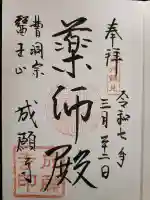 奉拝
令和七年
三月二十二日
薬師殿
曹洞宗
醫王山
成願寺